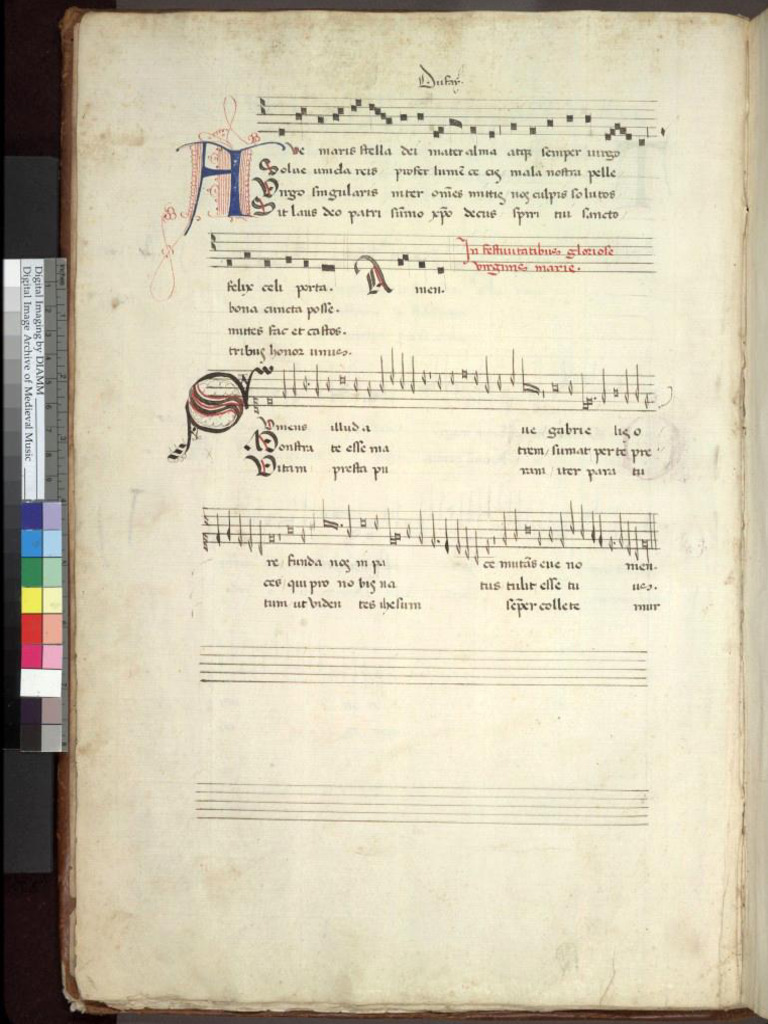 Dufay.
Ave maris stella dei mater alma atqꝫ semper uirgo
Solue uincla reis profer lumē ce cis mala nostra pelle
Virgo singularis inter om̄es mitis nos culpis solutos
Sit laus deo patri sūmo xp̄o decus spiri tui sancto
In festiuitatibus gloriose
virginis marie.
felix celi porta. Amen.
bona cuncta posse.
mites fac et castos.
tribus honor unus.
Sumens illud a ue gabrie lis o
Monstra te esse ma trem, sumat per te pre
Vitam presta pu ram, iter para tu
re funda nos in pa ce mutās eue no men.
ces, qui pro no bis na tus tulit esse tu us.
tum ut viden tes ihesum semp̄er collete mur
Digital Imaging by DIAMM
Digital Image Archive of Medieval Music